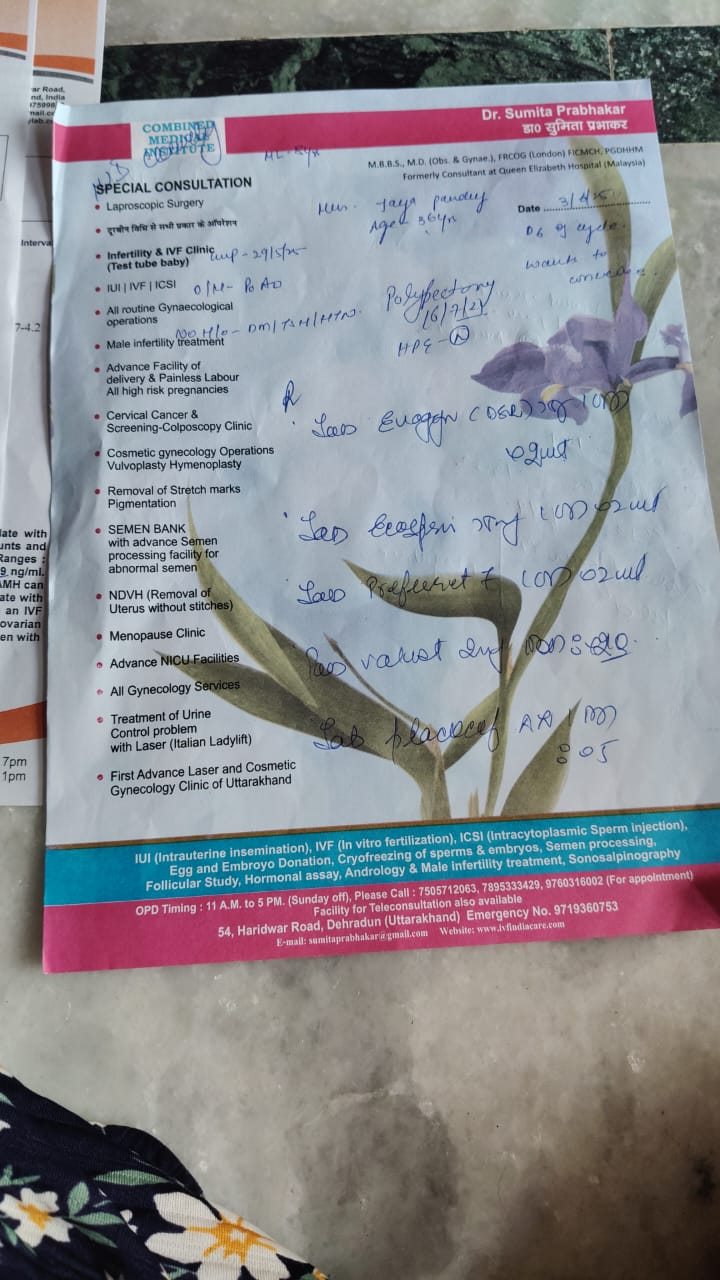 ar Road,
nd, India
75998
mail.c
ylab.c
Interva
7-4.2
late with
unts and
Ranges :
9 ng/ml.
AMH can
ate with
an IVF
ovarian
en with
7pm
1pm
COMBINED
MEDICAL
INSTITUTE
Dr. Sumita Prabhakar
डा० सुमिता प्रभाकर
M.B.B.S., M.D. (Obs. & Gynae.), FRCOG (London) FICMCH, PGDHHM
Formerly Consultant at Queen Elizabeth Hospital (Malaysia)
SPECIAL CONSULTATION
• Laproscopic Surgery
• दूरबीन विधि से सभी प्रकार के ऑपरेशन
• Infertility & IVF Clinic
(Test tube baby)
• IUI | IVF | ICSI
• All routine Gynaecological
operations
• Male infertility treatment
• Advance Facility of
delivery & Painless Labour
All high risk pregnancies
• Cervical Cancer &
Screening-Colposcopy Clinic
• Cosmetic gynecology Operations
Vulvoplasty Hymenoplasty
• Removal of Stretch marks
Pigmentation
• SEMEN BANK
with advance Semen
processing facility for
abnormal semen
• NDVH (Removal of
Uterus without stitches)
• Menopause Clinic
• Advance NICU Facilities
• All Gynecology Services
• Treatment of Urine
Control problem
with Laser (Italian Ladylift)
• First Advance Laser and Cosmetic
Gynecology Clinic of Uttarakhand
ML-
Mrs. Jaya pandey
Age 36yr
Date 3/6/25
D6 of cycle
wants to
conceive
LMP - 29/5/25
O/H- P0 A0
NO H/o - DM/TSH/HTN.
Polypectomy
16/7/21
HPE - N
Tab
Tab
Tab
Tab
Tab
IUI (Intrauterine insemination), IVF (In vitro fertilization), ICSI (Intracytoplasmic Sperm injection),
Egg and Embroyo Donation, Cryofreezing of sperms & embryos, Semen processing,
Follicular Study, Hormonal assay, Andrology & Male infertility treatment, Sonosalpinography
OPD Timing : 11 A.M. to 5 PM. (Sunday off), Please Call : 7505712063, 7895333429, 9760316002 (For appointment)
Facility for Teleconsultation also available
54, Haridwar Road, Dehradun (Uttarakhand) Emergency No. 9719360753
E-mail: sumitaprabhakar@gmail.com Website: www.ivfindiacare.com